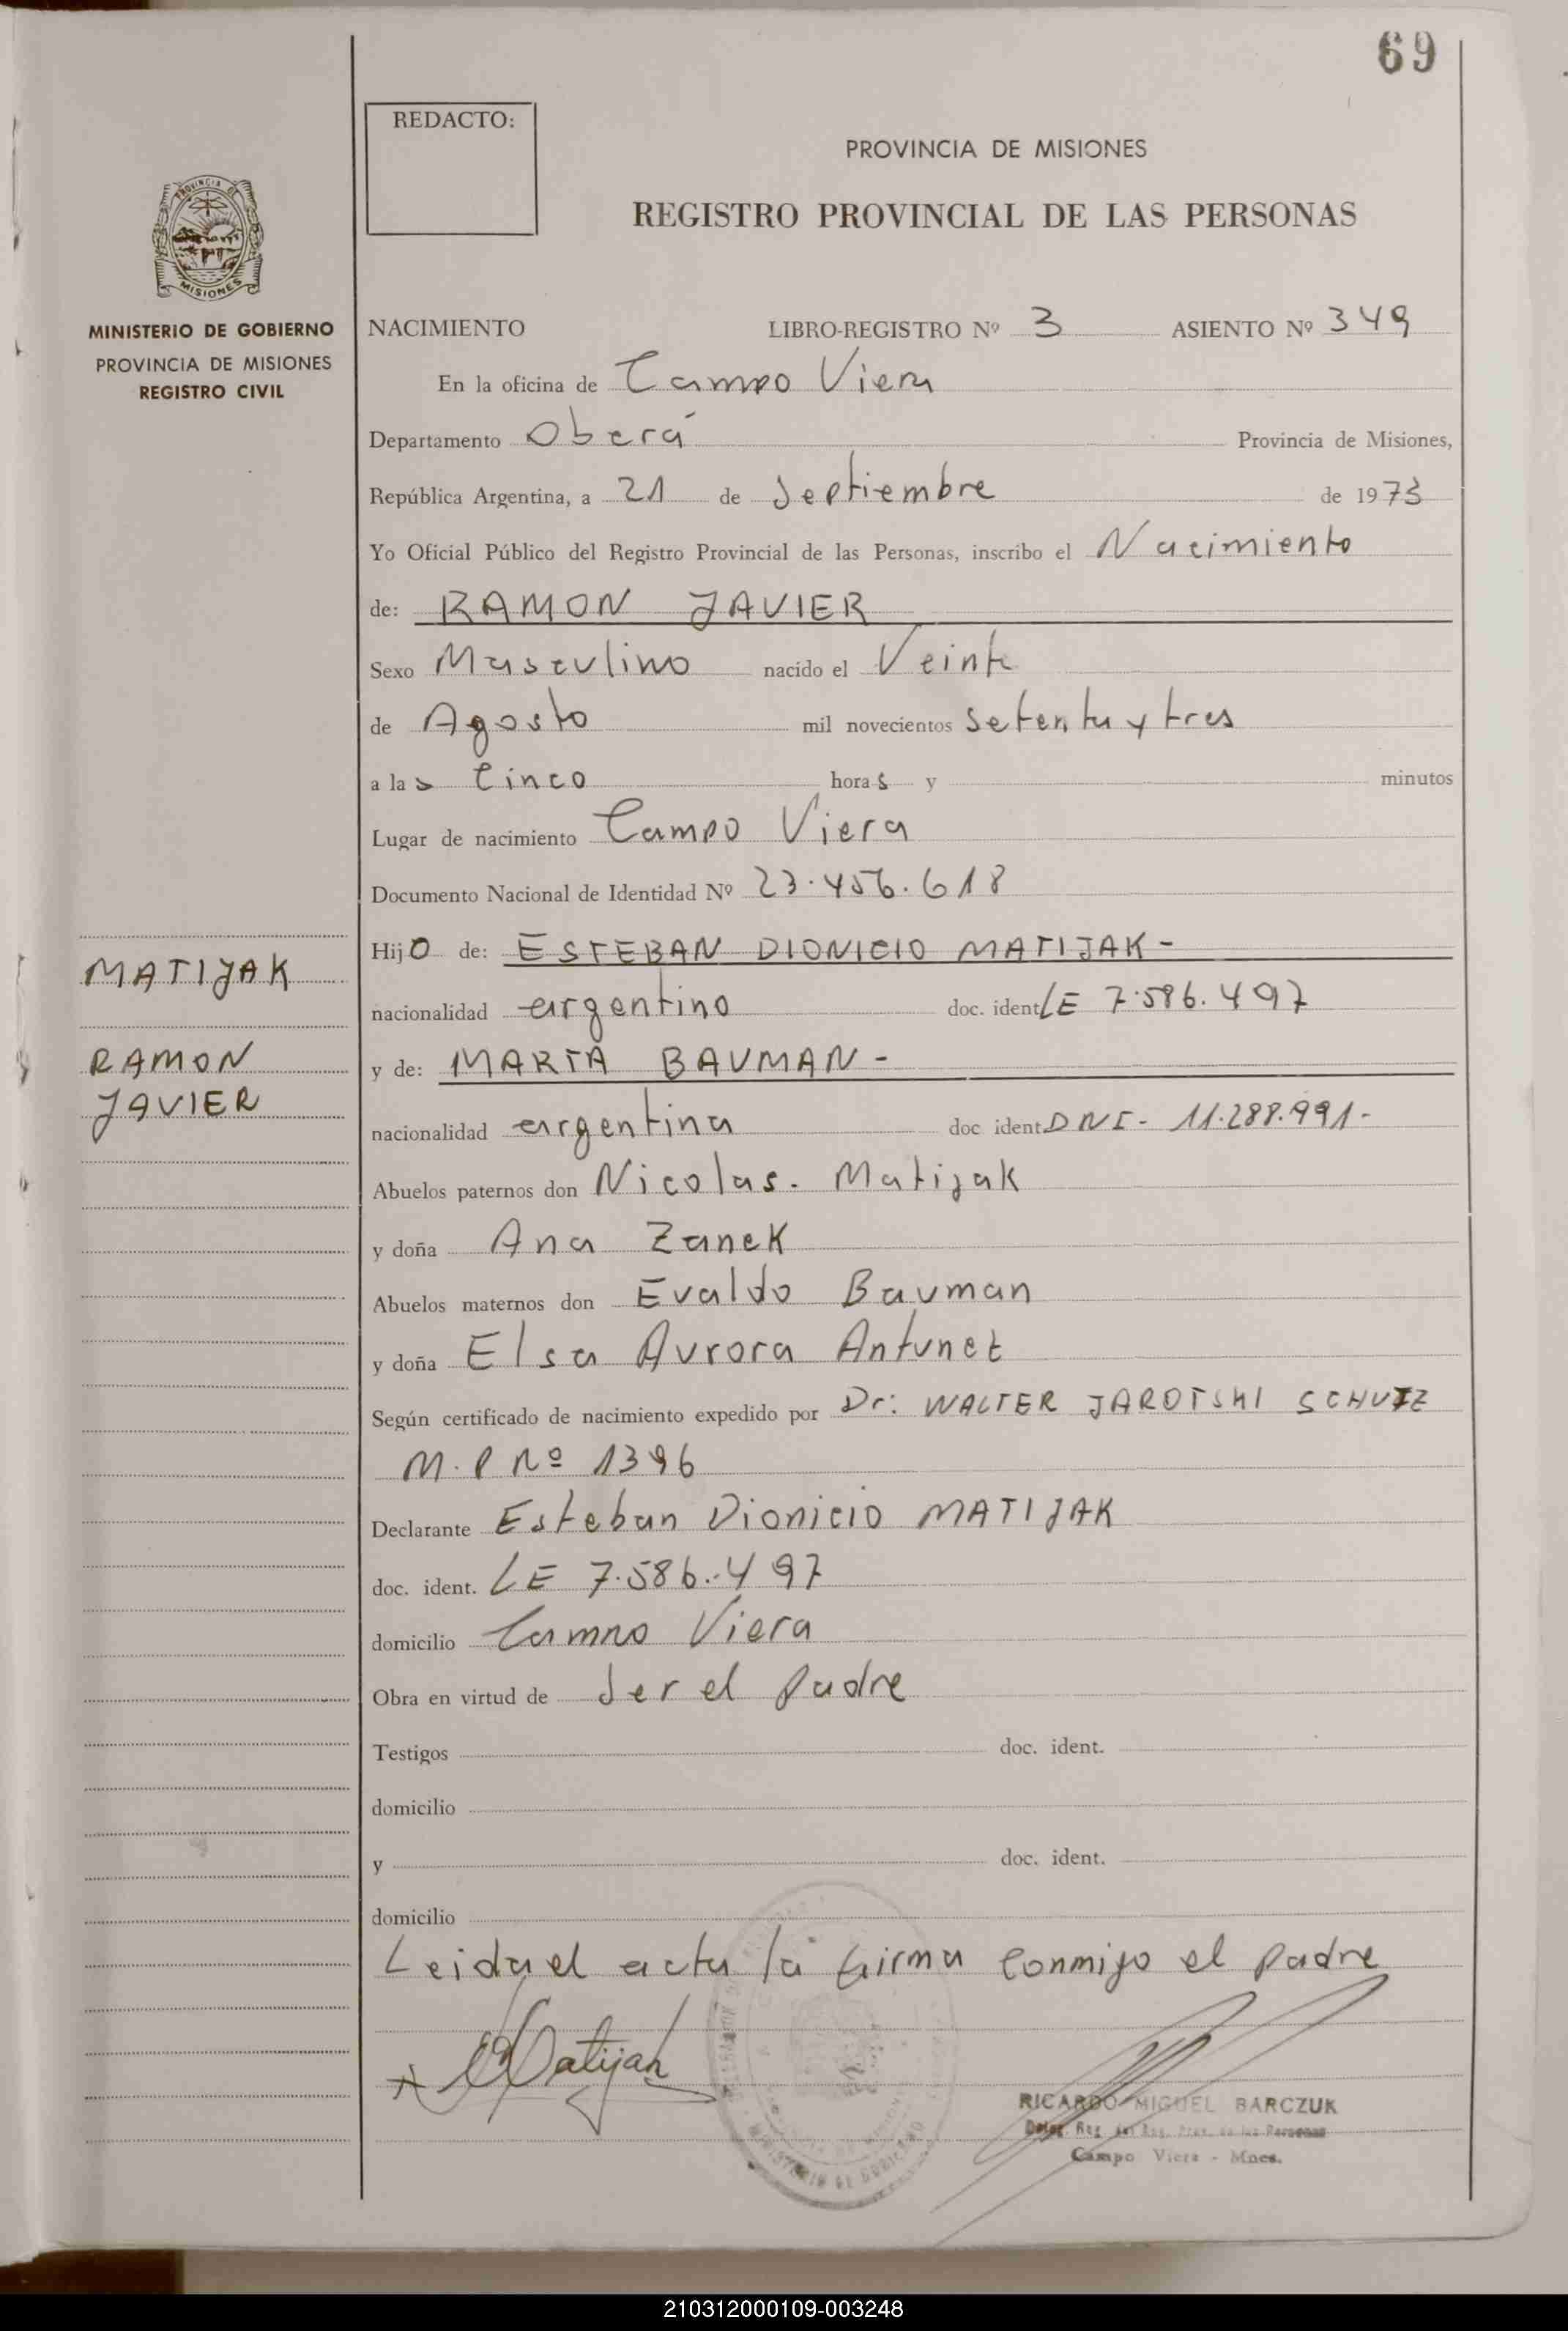 69
REDACTO:
PROVINCIA DE MISIONES
REGISTRO PROVINCIAL DE LAS PERSONAS
PROVINCIA DE
MISIONES
MINISTERIO DE GOBIERNO
PROVINCIA DE MISIONES
REGISTRO CIVIL
NACIMIENTO LIBRO-REGISTRO Nº 3 ASIENTO Nº 349
En la oficina de Campo Viera
Departamento Oberá Provincia de Misiones,
República Argentina, a 21 de Septiembre de 1973
Yo Oficial Público del Registro Provincial de las Personas, inscribo el Nacimiento
de: RAMON JAVIER
Sexo Masculino nacido el Veinte
de Agosto mil novecientos setenta y tres
a las Cinco horas y minutos
Lugar de nacimiento Campo Viera
Documento Nacional de Identidad Nº 23.456.618
Hijo de: ESTEBAN DIONICIO MATIJAK -
MATIJAK
nacionalidad argentino doc. ident LE 7.586.497
RAMON
y de: MARTA BAUMAN -
JAVIER
nacionalidad argentina doc. ident DNI - 11.288.991-
Abuelos paternos don Nicolas. Matijak
y doña Ana Zanek
Abuelos maternos don Evaldo Bauman
y doña Elsa Aurora Antunez
Según certificado de nacimiento expedido por Dr: WALTER JAROTSHI SCHUTZ
M.P Nº 1396
Declarante Esteban Dionicio MATIJAK
doc. ident. LE 7.586.497
domicilio Campo Viera
Obra en virtud de Ser el padre
Testigos doc. ident.
domicilio
y doc. ident.
domicilio
Leida el acta la firma conmigo el padre
Matijak
RICARDO MIGUEL BARCZUK
Deleg. Reg. del Reg. Prov. de las Personas
Campo Viera - Mnes.
MINISTERIO DE GOBIERNO
210312000109-003248